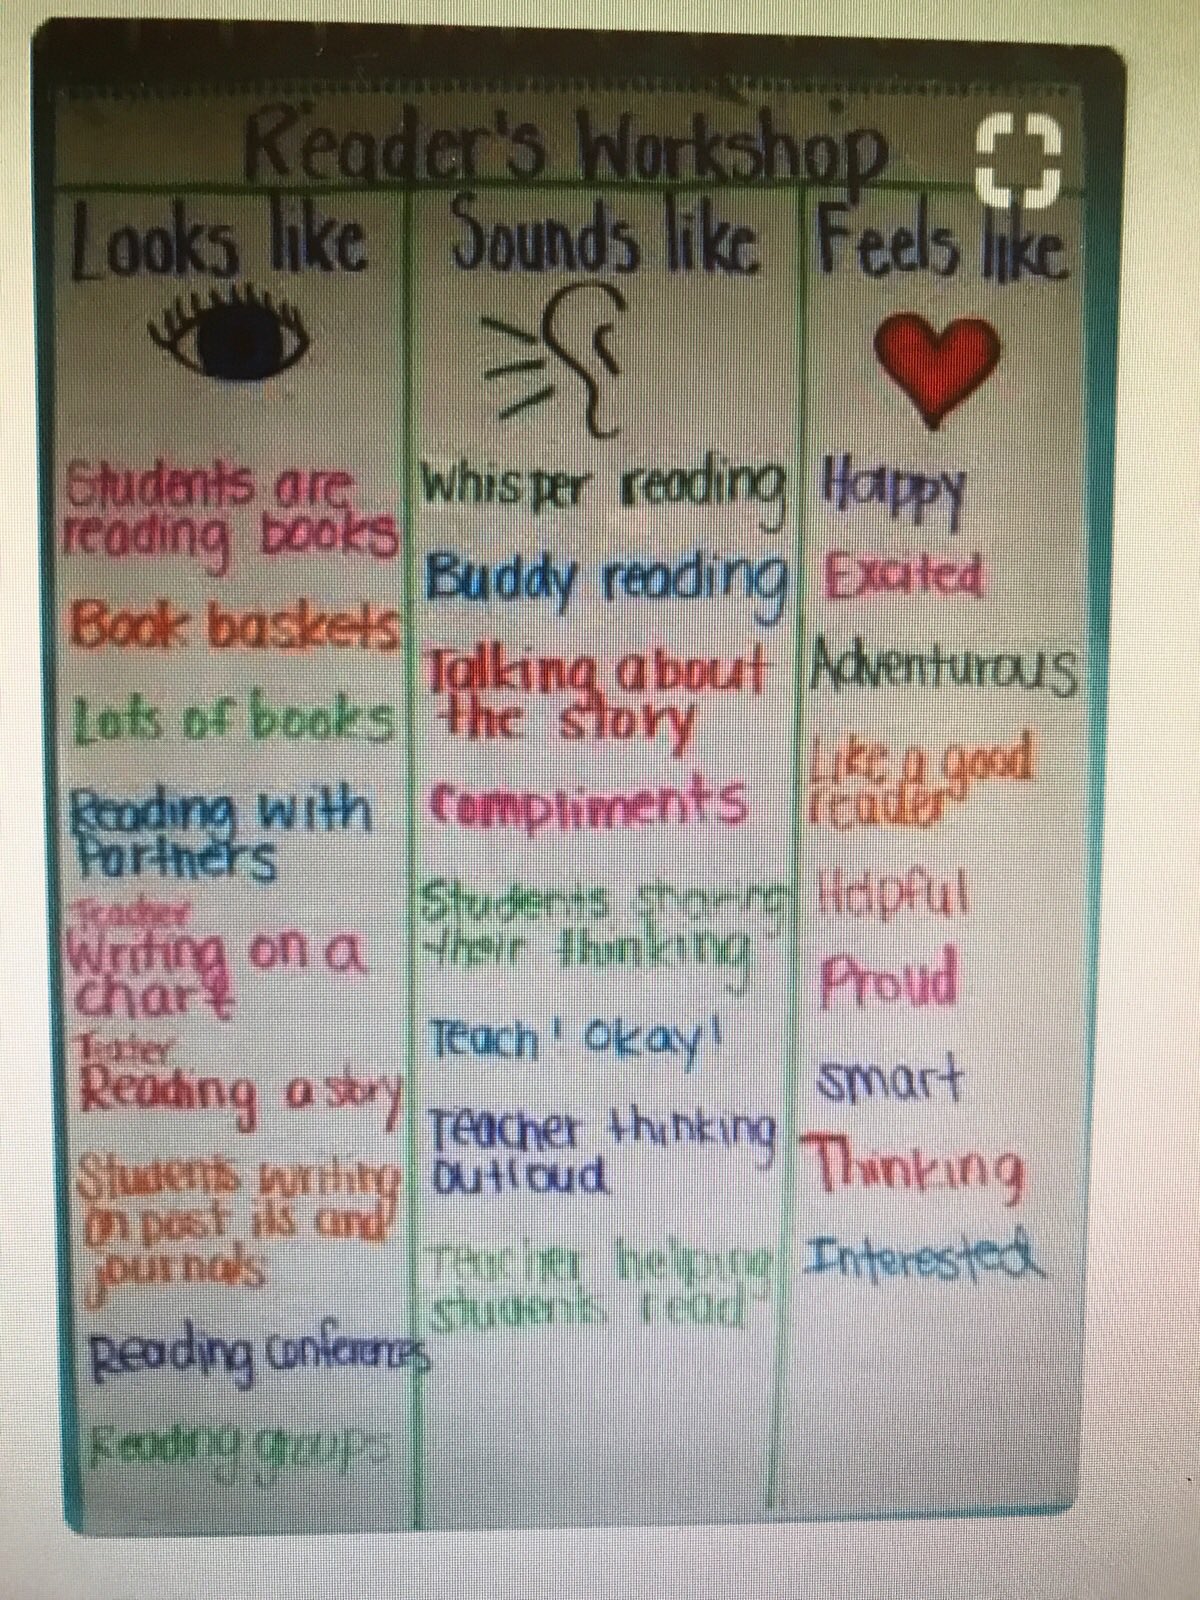 Reader's Workshop
Looks like
Students are
reading books
Book baskets
Lots of books
Reading with
Partners
Teacher
Writing on a
chart
Teacher
Reading a story
Students writing
on post its and
journals
Reading conferences
Reading groups
Sounds like
Whisper reading
Buddy reading
Talking about
the story
Compliments
Students sharing
their thinking
Teach! Okay!
Teacher thinking
outloud
Teacher helping
students read
Feels like
Happy
Excited
Adventurous
Like a good
reader
Helpful
Proud
smart
Thinking
Interested